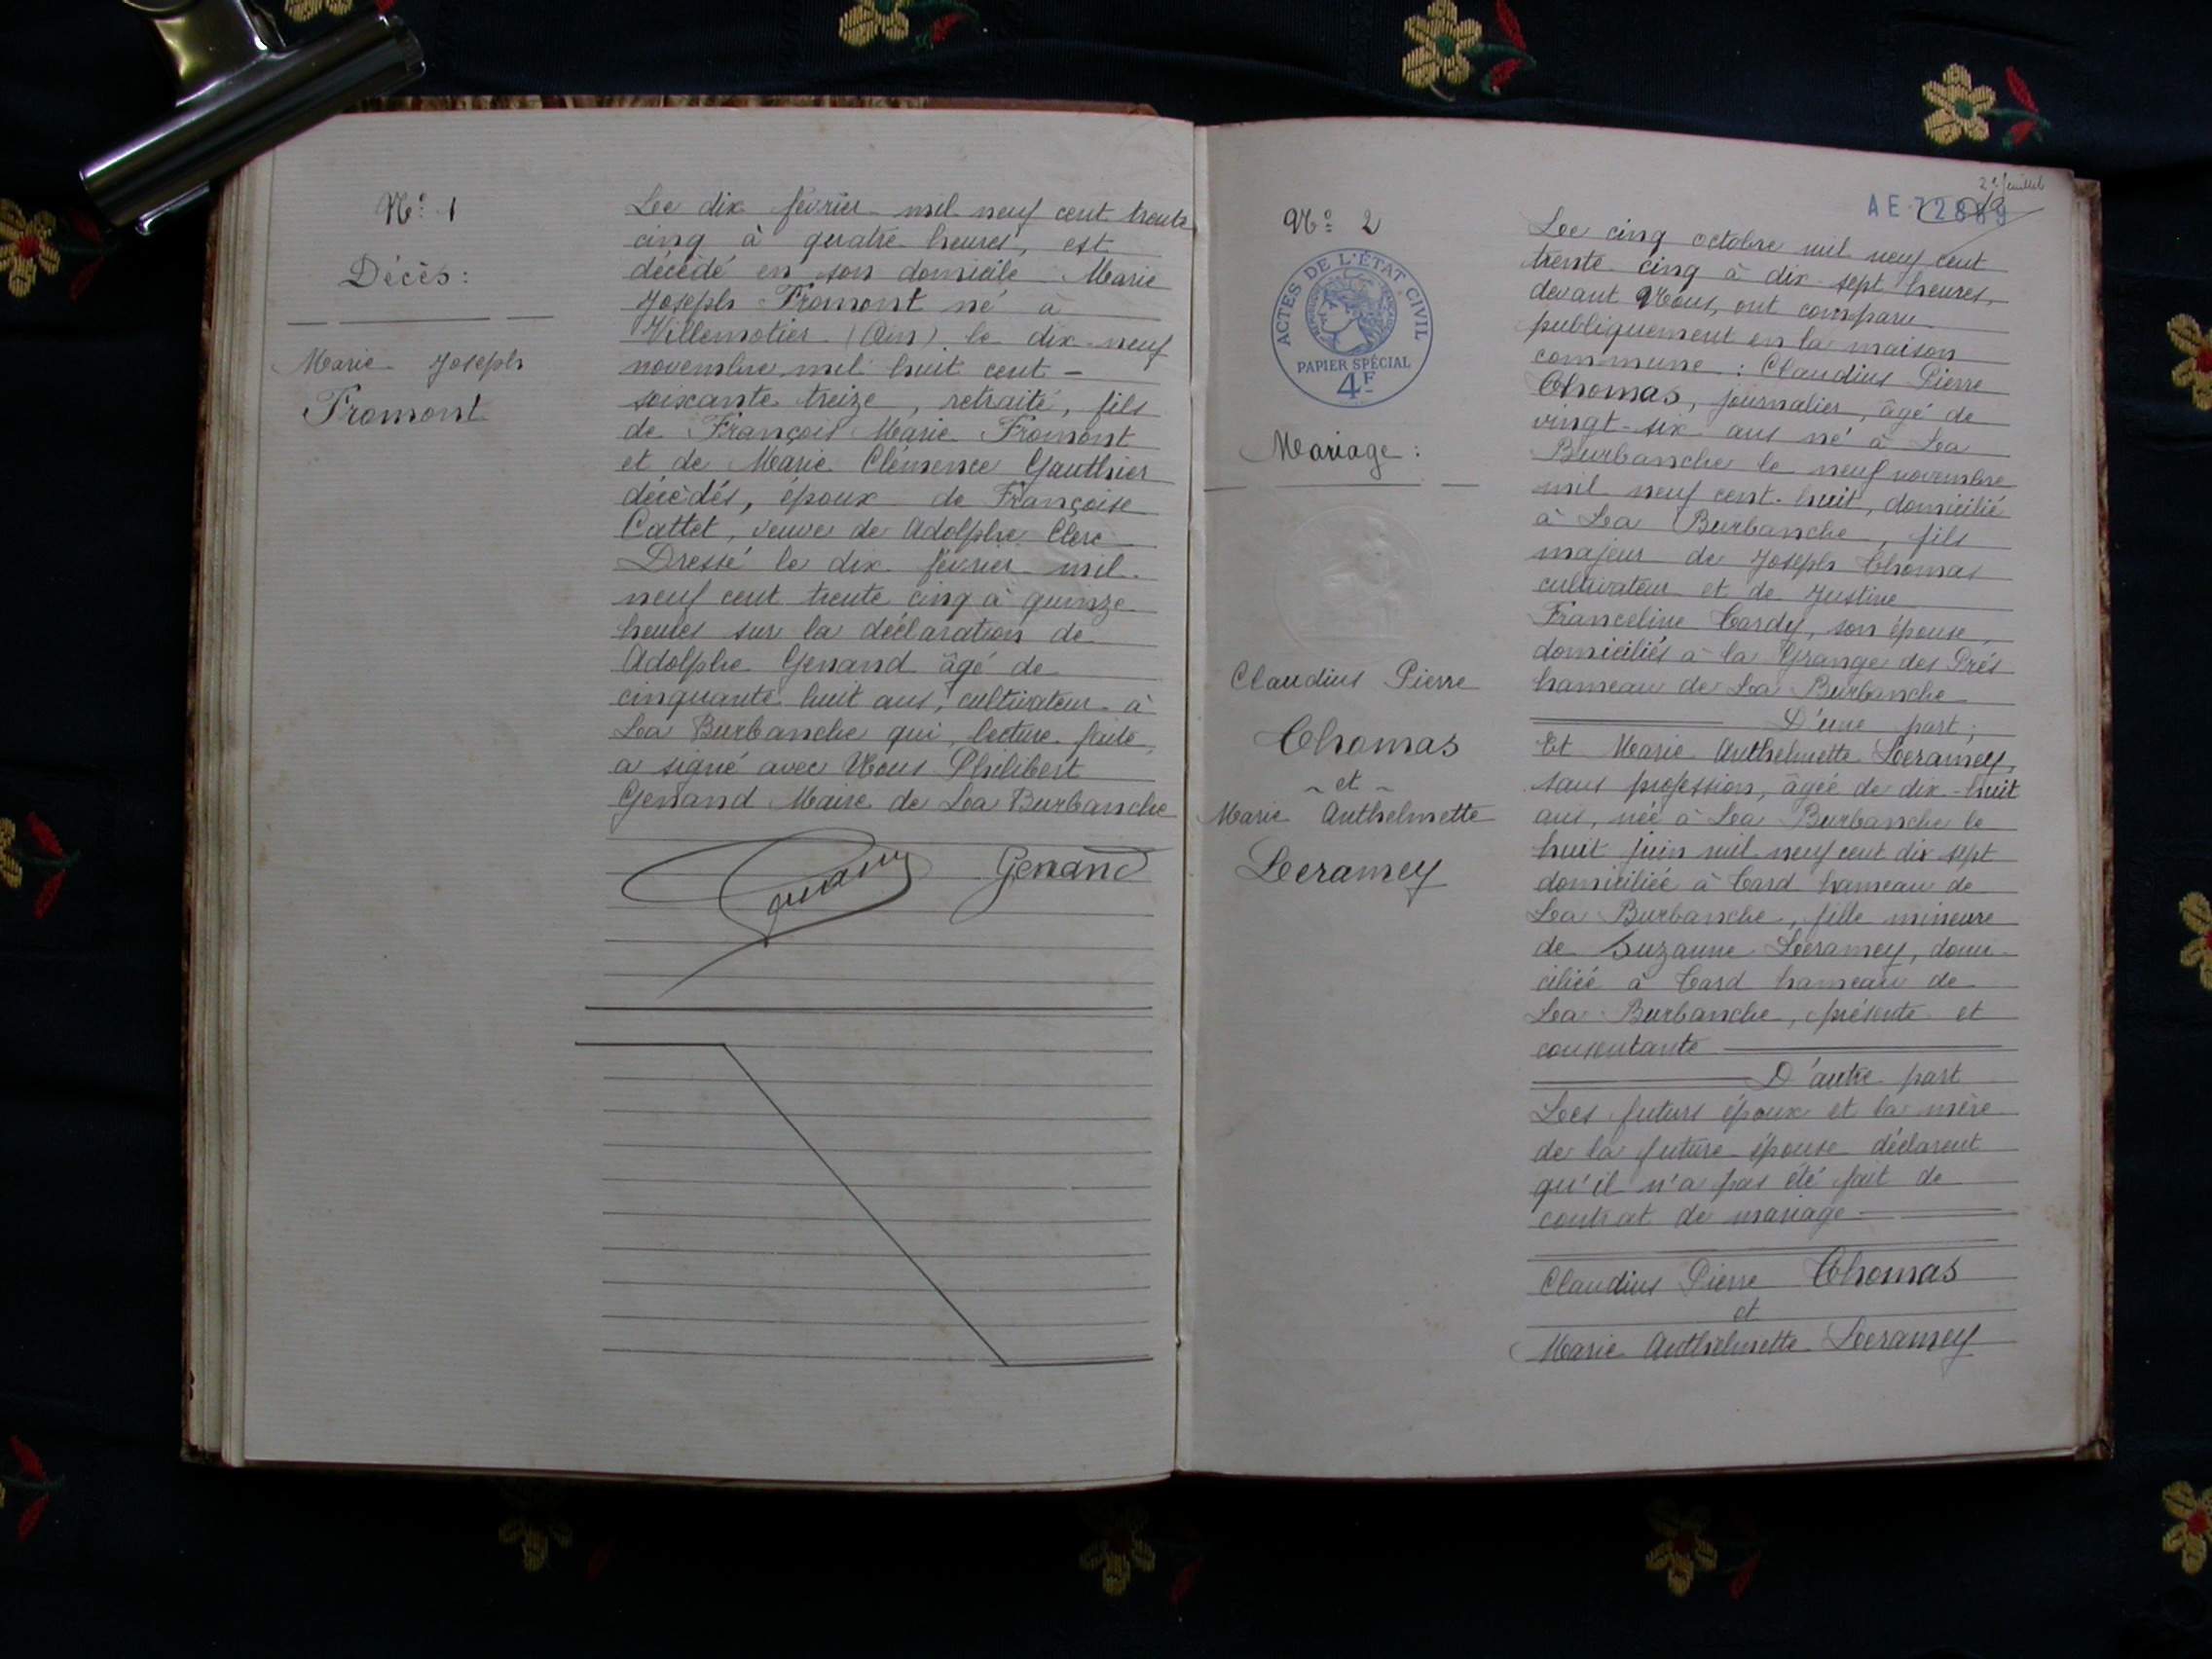 N° 1
Décès:
Marie Joseph
Fromont
Le dix février mil neuf cent trente
cinq à quatre heures, est
décédé en son domicile Marie
Joseph Fromont né à
Villemotier (Ain) le dix-neuf
novembre mil huit cent -
soixante treize, retraité, fils
de François Marie Fromont
et de Marie Clémence Gauthier
décédés, époux de Françoise
Cattet, veuve de Adolphe Clerc
Dressé le dix février mil
neuf cent trente cinq à quinze
heures sur la déclaration de
Adolphe Genand âgé de
cinquante huit ans, cultivateur à
La Burbanche qui, lecture faite,
a signé avec Nous Philibert
Genand Maire de La Burbanche
Genand
2e feuillet
AE 72889
N° 2
ACTES DE L'ÉTAT CIVIL
PAPIER SPÉCIAL
4F
Mariage:
Claudius Pierre
Thomas
- et -
Marie Anthelmette
Leramey
Le cinq octobre mil neuf cent
trente cinq à dix-sept heures,
devant Nous, ont comparu
publiquement en la maison
commune: Claudius Pierre
Thomas, journalier, âgé de
vingt-six ans né à La
Burbanche le neuf novembre
mil neuf cent-huit, domicilié
à La Burbanche, fils
majeur de Joseph Thomas
cultivateur et de Justine
Franceline Tardy, son épouse,
domiciliés à la Grange des Prés
hameau de La Burbanche
D'une part;
Et Marie Anthelmette Leramey,
sans profession, âgée de dix-huit
ans, née à La Burbanche le
huit juin mil neuf cent dix sept
domiciliée à Tard hameau de
La Burbanche, fille mineure
de Suzanne Leramey, domi
ciliée à Tard hameau de
La Burbanche, présente et
consentante
D'autre part
Les futurs époux et la mère
de la future épouse déclarent
qu'il n'a pas été fait de
contrat de mariage
Claudius Pierre Thomas
et
Marie Anthelmette Leramey